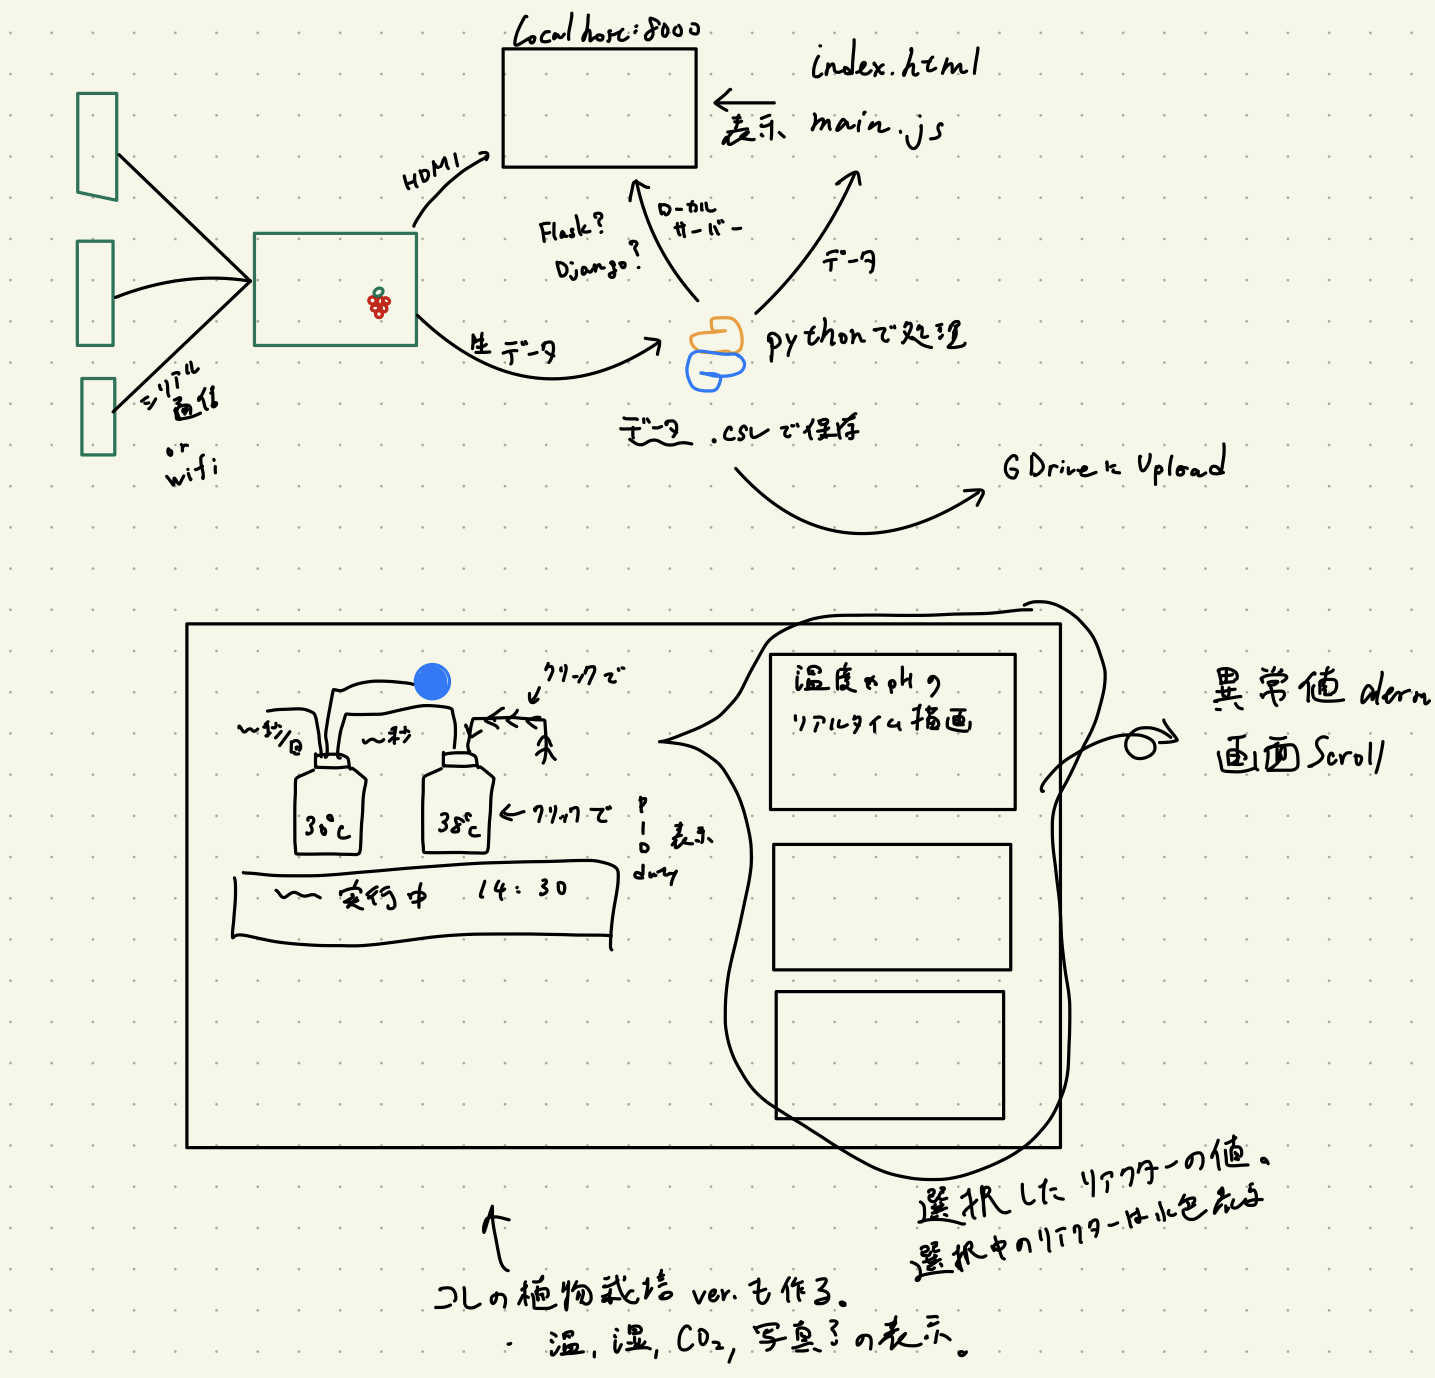 Localhost:8000
index.html
main.js
表示
HDMI
Flask?
Django?
ローカル
サーバー
データ
生データ
pythonで処理
シリアル
通信
or
wifi
データ .csvで保存
G DriveにUpload
クリックで
〜秒/回
〜秒
30℃
38℃
←クリックで
P
I
D
duty
表示
〜〜 実行中 14:30
温度やpHの
リアルタイム描画
異常値
画面Scroll
選択したリアクターの値。
選択中のリアクターは水色点滅
コレの植物栽培ver.も作る。
・温,湿,CO₂,写真?の表示。